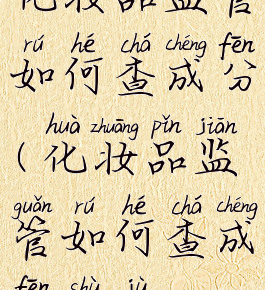 化妆品监管
rú hé chá chéng fēn
如何查成分
huà zhuāng pǐn jiān
(化妆品监
guǎn rú hé chá chéng
管如何查成
fēn shù jù